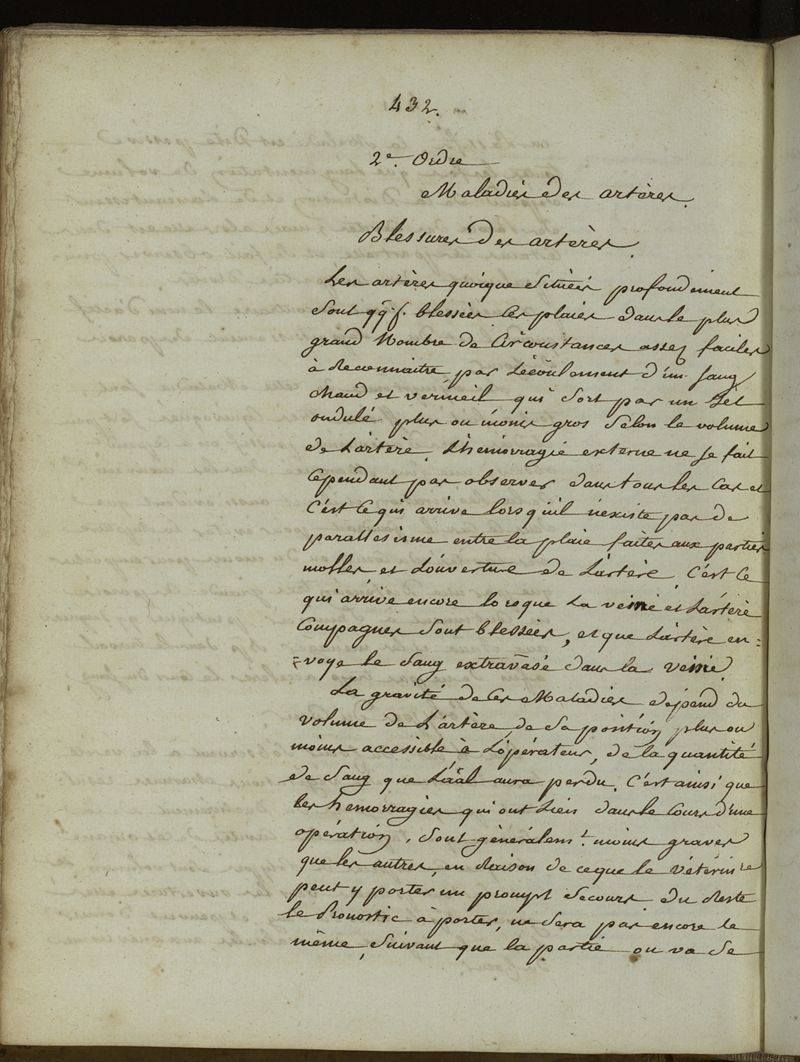 432.
2e. Ordre
Maladies des artères.
Blessures des artères.
Les artères quoique Situées profondément
Sont qq f. blessées les plaies dans le plus
grand Nombre de Circonstances assez faciles
à Reconnaitre par L'écoulement d'un Sang
chaud et vermeil qui Sort par un Jet
ondulé plus ou moins gros Selon le volume
de L'artère. L'hemorragie externe ne se fait
Cependant pas observer dans tous les Cas et
C'est Ce qui arrive lorsqu'il n'existe pas de
parallesisme entre la plaie faites aux parties
molles et L'ouverture de L'artère. C'est Ce
qui arrive encore lorsque La veine et L'artère
Compagnes Sont blessées, et que L'artère en=
=voye le Sang extravasé dans la veine.
La gravité de Ces Maladies dépend du
volume de L'artère de Sa position plus ou
moins accessible à L'opérateur, de la quantité
de Sang que L'aal aura perdu. C'est ainsi que
les hemorragies qui ont Lieu dans le Cours d'une
opération, Sont généralemt. moins graves
que les autres, en Raison de ce que le Vétérinre
peut y porter un prompt Secours du Reste
le Pronostic à porter, ne Sera pas encore le
même, Suivant que la partie ou va Se